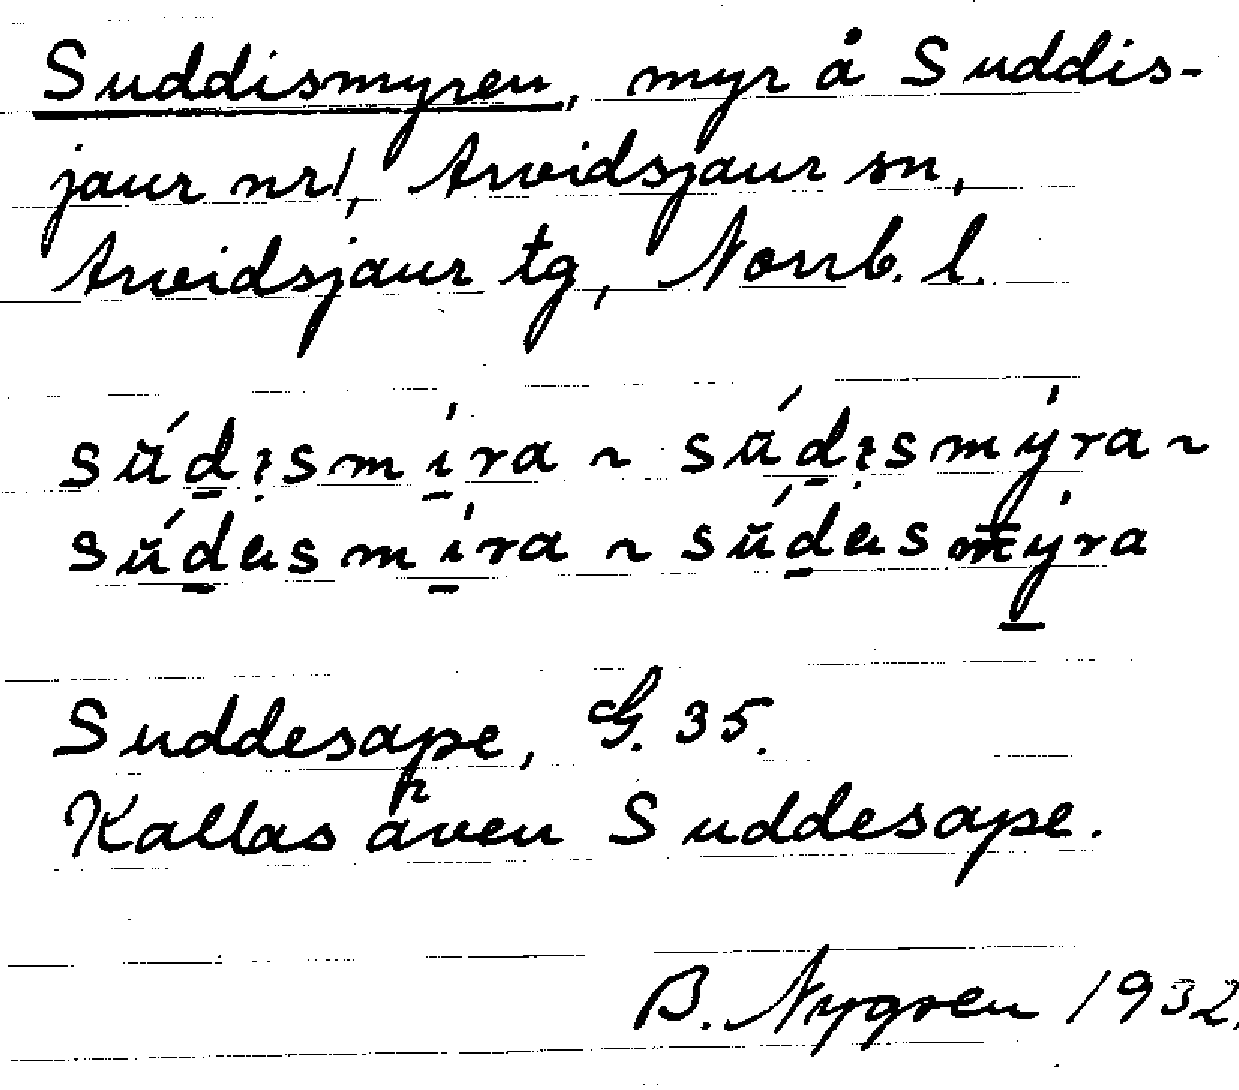 Suddismyren, myr å Suddis-
jaur nr 1, Arvidsjaur sn,
Arvidsjaur tg, Norrb. l.
sŭ́dı̣smíra ~ sŭ́dı̣smýra ~
sŭ́dəsmíra ~ sŭ́dəsmýra
Suddesape, G. 35.
Kallas även Suddesape.
B. Nygren 1932.